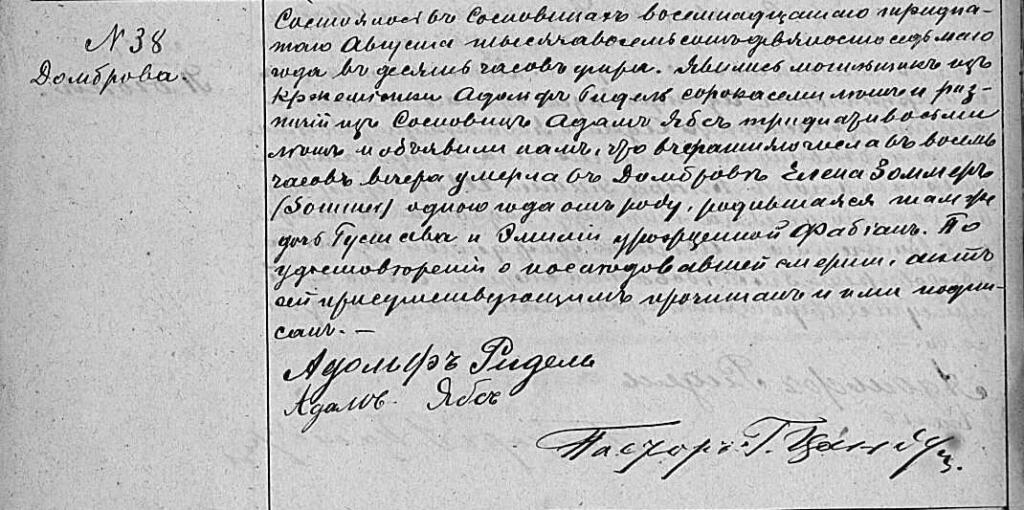 N 38
Домброва.
Состоялось въ Сосновицахъ восемнадцатаго тридца-
таго Августа тысяча восемьсотъ девяносто седьмаго
года въ десять часовъ утра. Явились могильщикъ изъ
Адольфъ Ридель сорока семи лѣтъ и
изъ Сосновицъ Адамъ Ябсъ тридцати восьми
лѣтъ и объявили намъ, что вчерашняго числа въ восемь
часовъ вечера умерла въ Домбровѣ Елена Зоммеръ
(Sommer) одного года отъ роду, родившаяся тамъ же
дочь Густава и Эмиліи урожденной Фабіанъ. По
удостовѣреніи о послѣдовавшей смерти, актъ
сей присутствующимъ прочитанъ и ими подпи-
санъ. —
Адольфъ Ридель
Адамъ Ябсъ
Пасторъ Г.